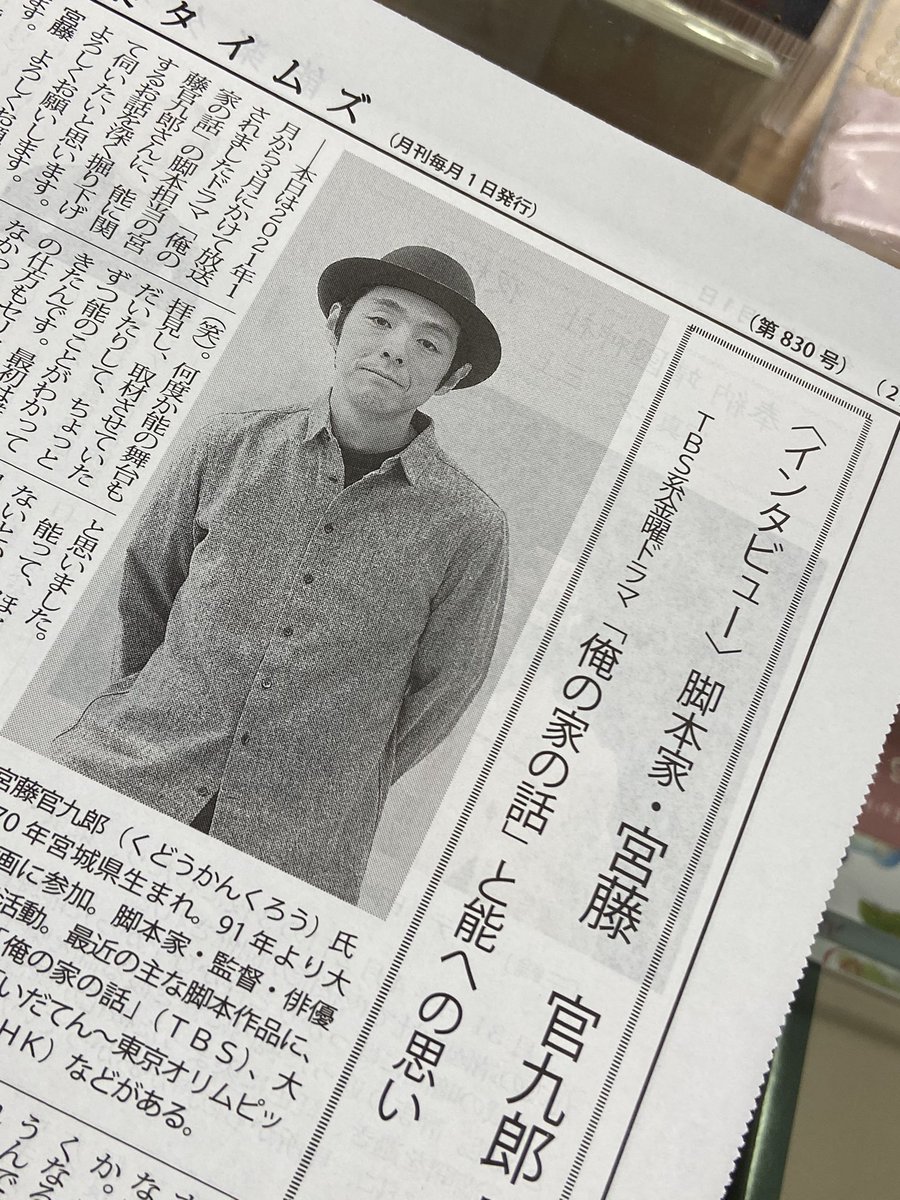 タイムズ
(月刊毎月1日発行)
(第830号)
(2
〈インタビュー〉脚本家・宮藤 官九郎
TBS系金曜ドラマ「俺の家の話」と能への思い
――本日は2021年1
月から3月にかけて放送
されましたドラマ「俺の
家の話」の脚本担当の宮
藤官九郎さんに、能に関
するお話を深く掘り下げ
て伺いたいと思います。
よろしくお願いします。
宮藤 よろしくお願
ます。
(笑)。何度か能の舞台も
拝見し、取材させていた
だいたりして、ちょっと
ずつ能のことがわかって
きたんです。最初は
の仕方もセリ
なかっ
と思いました。
能って、
ないと
宮藤官九郎(くどうかんくろう)氏
70年宮城県生まれ。91年より大
画に参加。脚本家・監督・俳優
活動。最近の主な脚本作品に、
「俺の家の話」(TBS)、大
いだてん〜東京オリムピッ
HK)などがある。